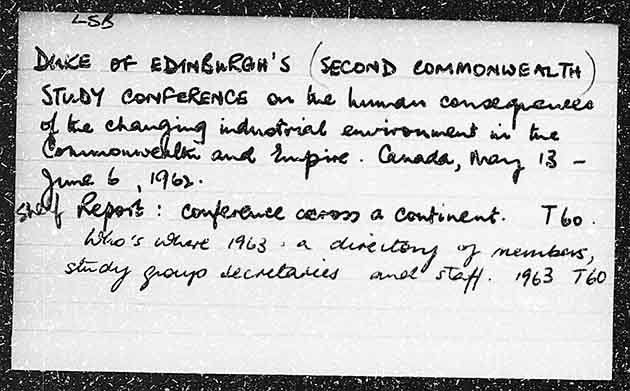 LSB
DUKE OF EDINBURGH'S (SECOND COMMONWEALTH)
STUDY CONFERENCE on the human consequences
of the changing industrial environment in the
Commonwealth and Empire. Canada, May 13 -
June 6, 1962.
Shelf Report: Conference across a continent. T60.
Who's where 1963. a directory of members,
study group secretaries and staff. 1963 T60